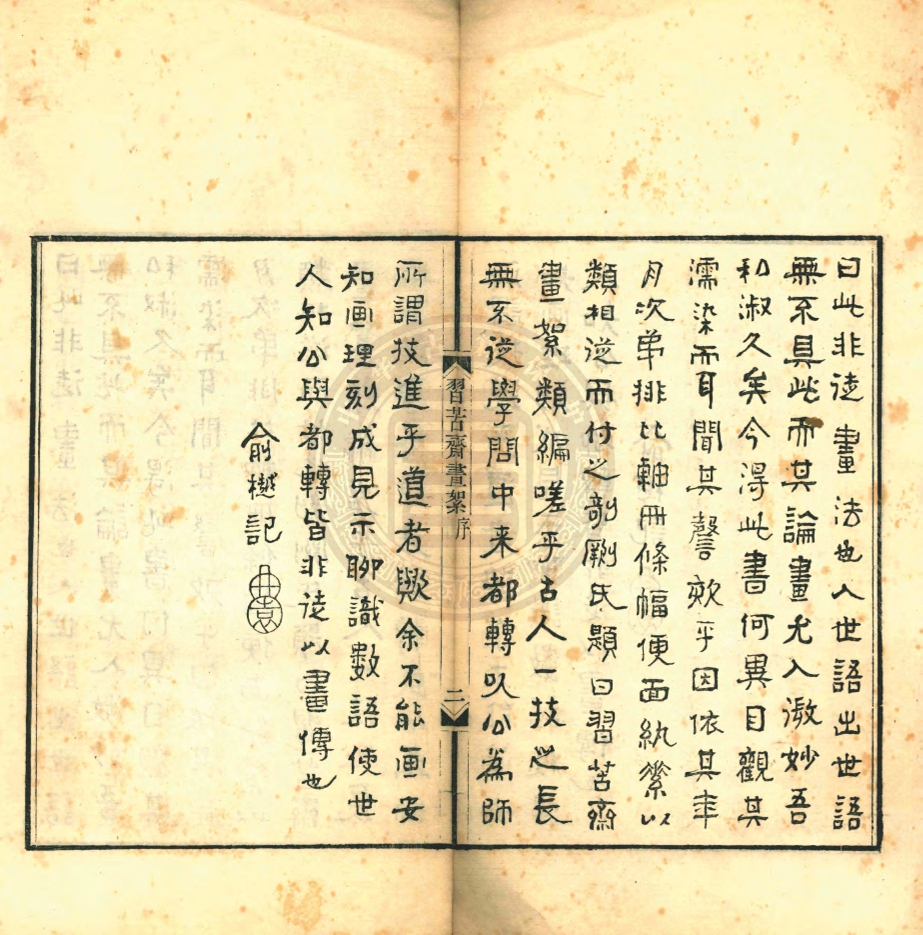 曰此非徒畫法也人世語出世語
無不具此而其論畫尤入微妙吾
和淑久矣今得此書何異目觀其
濡染而耳聞其謦欬乎因依其年
月次第排比軸冊條幅便面紈縑以
類相從而付之剞劂氏題曰習苦齋
畫絮類編嗟乎古人一技之長
無不從學問中来都轉以公為師
習苦齋畫絮 序
二
所謂技進乎道者歟余不能画安
知画理刻成見示聊識數語使世
人知公與都轉皆非徒以畫傳也
俞樾記
曲園